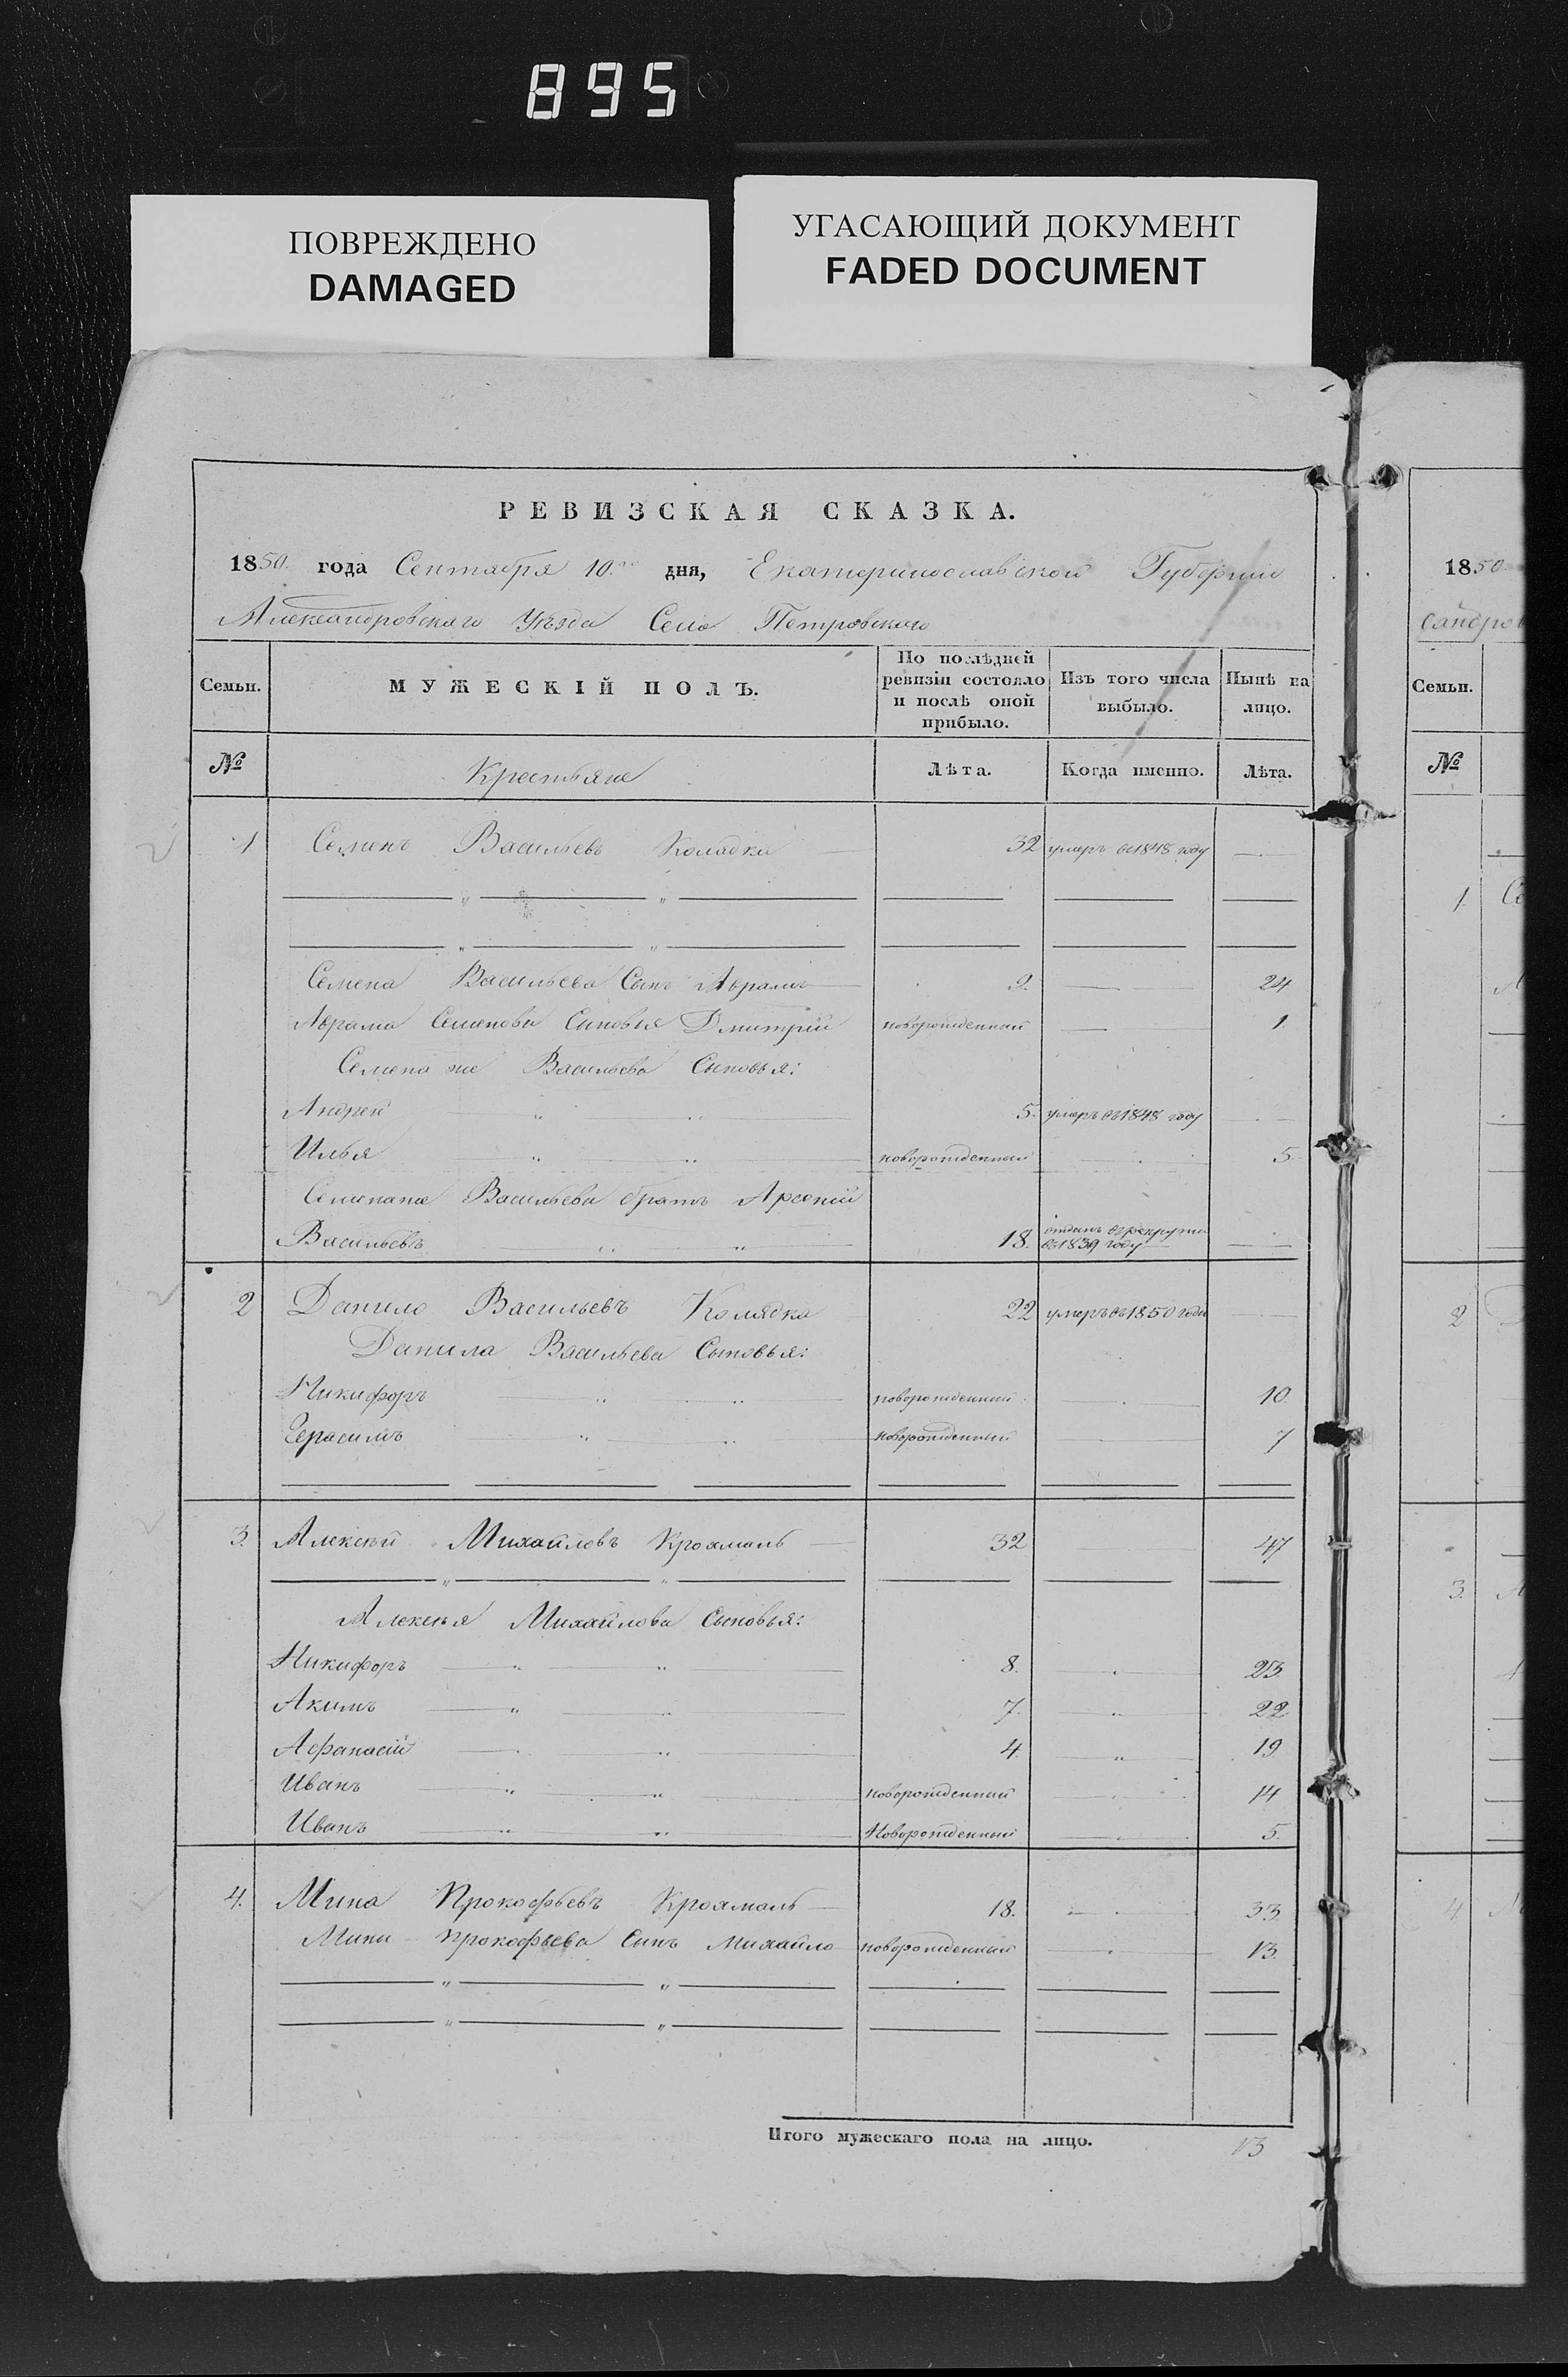 895
ПОВРЕЖДЕНО
DAMAGED
УГАСАЮЩИЙ ДОКУМЕНТ
FADED DOCUMENT
РЕВИЗСКАЯ СКАЗКА.
1850. года Сентября 10го дня, Екатеринославской Губернiи
Александровскаго Уѣзда Села Петровскаго
Семьи. МУЖЕСКІЙ ПОЛЪ. По послѣдней ревизіи состояло и послѣ оной прибыло. Изъ того числа выбыло. Нынѣ на лицо.
№ Крестьяне Лѣта. Когда именно. Лѣта.
1 Семенъ Васильевъ Колядка 32 умеръ въ 1848 году
Семена Васильева Сынъ Абрамъ 9. 24
Абрама Семенова Сыновья Дмитрій новорожденный 1
Семена же Васильева Сыновья:
Андрей 5. умеръ въ 1848 году
Илья новорожденный 5
Семена же Васильева братъ Арсеній
Васильевъ 18. отданъ въ рекруты въ 1839 году
2 Данило Васильевъ Колядка 22 умеръ въ 1850 году
Данила Васильева Сыновья:
Никифоръ новорожденный 10.
Герасимъ новорожденный 7
3. Алексѣй Михайловъ Крохмаль 32 47
Алексѣя Михайлова Сыновья:
Никифоръ 8. 23
Акимъ 7. 22
Афанасій 4 19
Иванъ новорожденный 14
Иванъ Новорожденный 5.
4. Мина Прокофьевъ Крохмаль 18. 33
Мины Прокофьева Сынъ Михайло новорожденный 13.
Итого мужескаго пола на лицо. 13
1850
сандров
Семьи.
№
1
2
3.
4